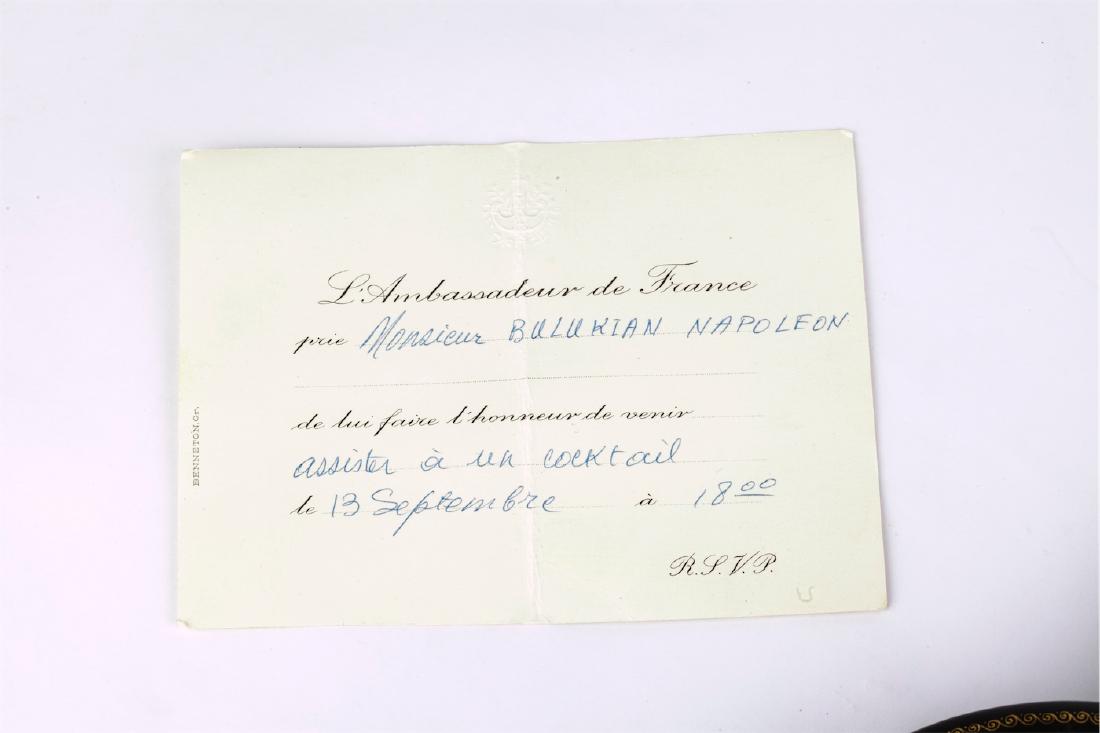 L'Ambassadeur de France
prie Monsieur BULUKIAN NAPOLEON
de lui faire l'honneur de venir
assister à un cocktail
le 13 Septembre à 18 00
R.S.V.P.
BENNETON.Gr.